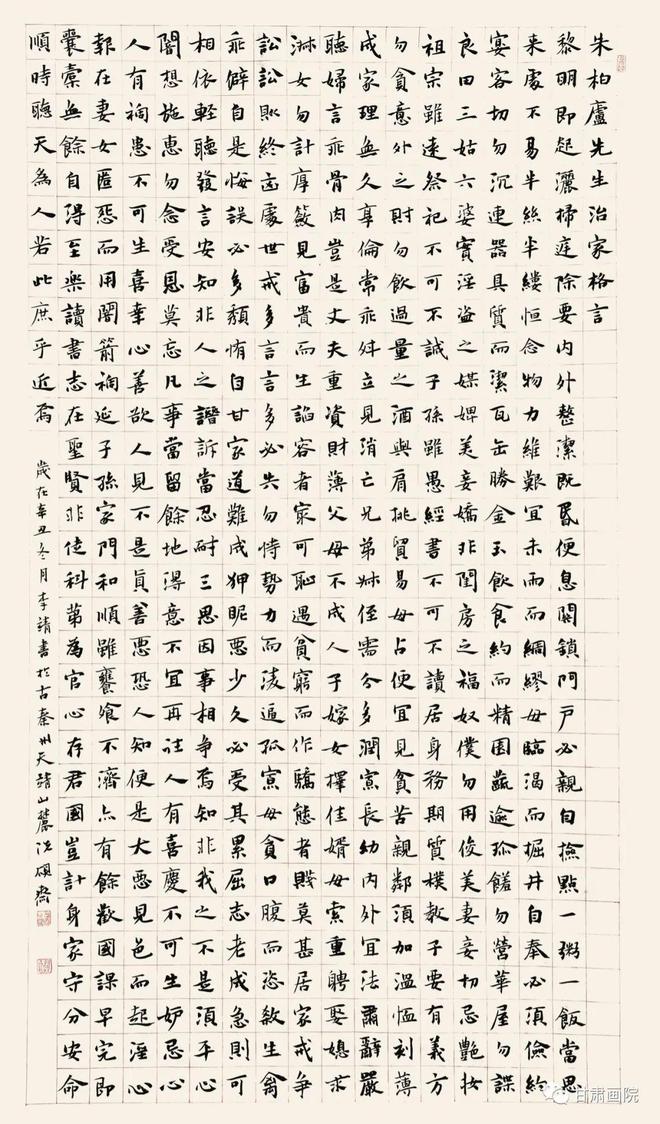 朱柏廬先生治家格言
黎明即起灑掃庭除要內外整潔既昬便息關鎖門戶必親自撿點一粥一飯當思
來處不易半絲半縷恒念物力維艱宜未雨而綢繆毋臨渴而掘井自奉必須儉約
宴客切勿沉連器具質而潔瓦缶勝金玉飲食約而精園蔬逾珎饈勿營華屋勿謀
良田三姑六婆實淫盜之媒婢美妾嬌非閨房之福奴僕勿用俊美妻妾切忌艷妝
祖宗雖遠祭祀不可不誠子孫雖愚經書不可不讀居身務期質樸教子要有義方
勿貪意外之財勿飲過量之酒與肩挑貿易毋占便宜見貧苦親鄰須加溫恤刻薄
成家理無久享倫常乖舛立見消亡兄弟叔侄需分多潤寡長幼內外宜法肅辭嚴
聽婦言乖骨肉豈是丈夫重資財薄父母不成人子嫁女擇佳婿毋索重聘娶媳求
淋女勿計厚籢見富貴而生諂容者最可恥遇貧窮而作驕態者賤莫甚居家戒爭
訟訟則終凶處世戒多言言多必失勿恃勢力而淩逼孤寡毋貪口腹而恣殺生禽
乖僻自是悔誤必多頹惰自甘家道難成狎昵惡少久必受其累屈志老成急則可
相依輕聽發言安知非人之譖訴當忍耐三思因事相爭焉知非我之不是須平心
闇想施惠勿念受恩莫忘凡事當留餘地得意不宜再往人有喜慶不可生妒忌心
人有禍患不可生喜幸心善欲人見不是真善惡恐人知便是大惡見色而起淫心
報在妻女匿怨而用闇箭禍延子孫家門和順雖饔飧不濟亦有餘歡國課早完即
囊橐無餘自得至樂讀書志在聖賢非徒科第為官心存君國豈計身家守分安命
順時聽天為人若此庶乎近焉
歲在辛丑冬月李靖書於古秦州天靖山麓沉硯齋
甘肃画院